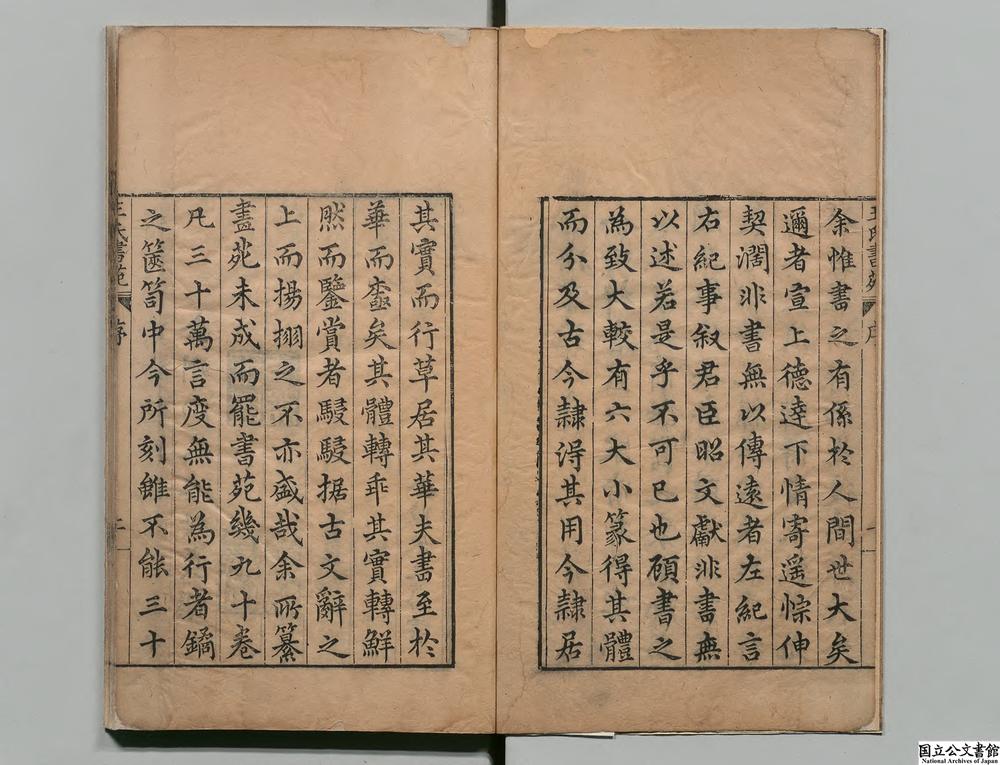 余惟書之有係扵人間世大矣
邇者宣上德逹下情寄遥悰伸
契濶非書無以傳遠者左紀言
右紀事叙君臣昭文獻非書無
以述若是乎不可已也頋書之
為致大較有六大小篆得其體
而分及古今隷淂其用今隷居
王氏書苑 序 一
其實而行草居其華夫書至扵
華而蠧矣其體轉乖其實轉鮮
然而鑒賞者駸駸据古文辭之
上而揚搦之不亦盛哉余所纂
畫苑未成而罷書苑幾九十卷
凡三十萬言度無能為行者鐍
之篋笥中今所刻雖不能三十
王氏書苑 序
国立公文書館
National Archives of Japan